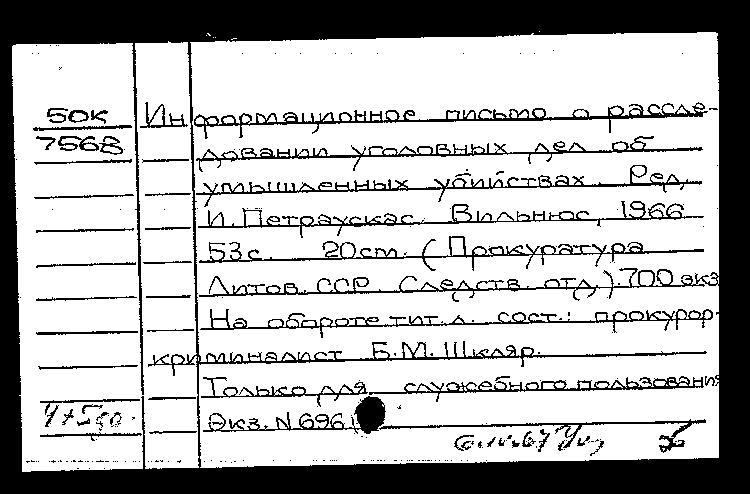 50К
7568
Информационное письмо о рассле-
довании уголовных дел об
умышленных убийствах. Ред.
И. Петраускас. Вильнюс, 1966
53с. 20ст. (Прокуратура
Литов. ССР. Следств. отд.). 700 экз
На обороте тит. л. сост.: прокурор-
криминалист Б.М. Шкляр.
Только для служебного пользования
Экз. N 696